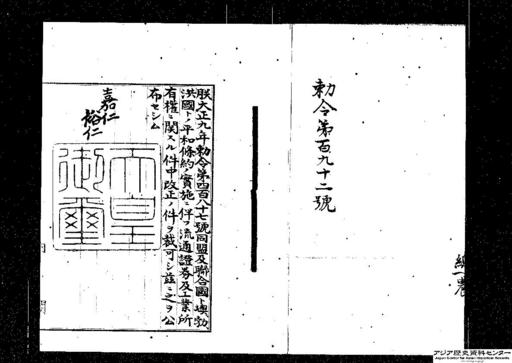 勅令第百九十二號
朕大正九年勅令第四百八十七號同盟及聯合國ト墺勃
洪國トノ平和條約ノ實施ニ伴フ流通證券及工業所
有權ニ關スル件中改正ノ件ヲ裁可シ茲ニ之ヲ公
布セシム
嘉仁
裕仁
天皇
御璽
アジア歴史資料センター
Japan Center for Asian Historical Records